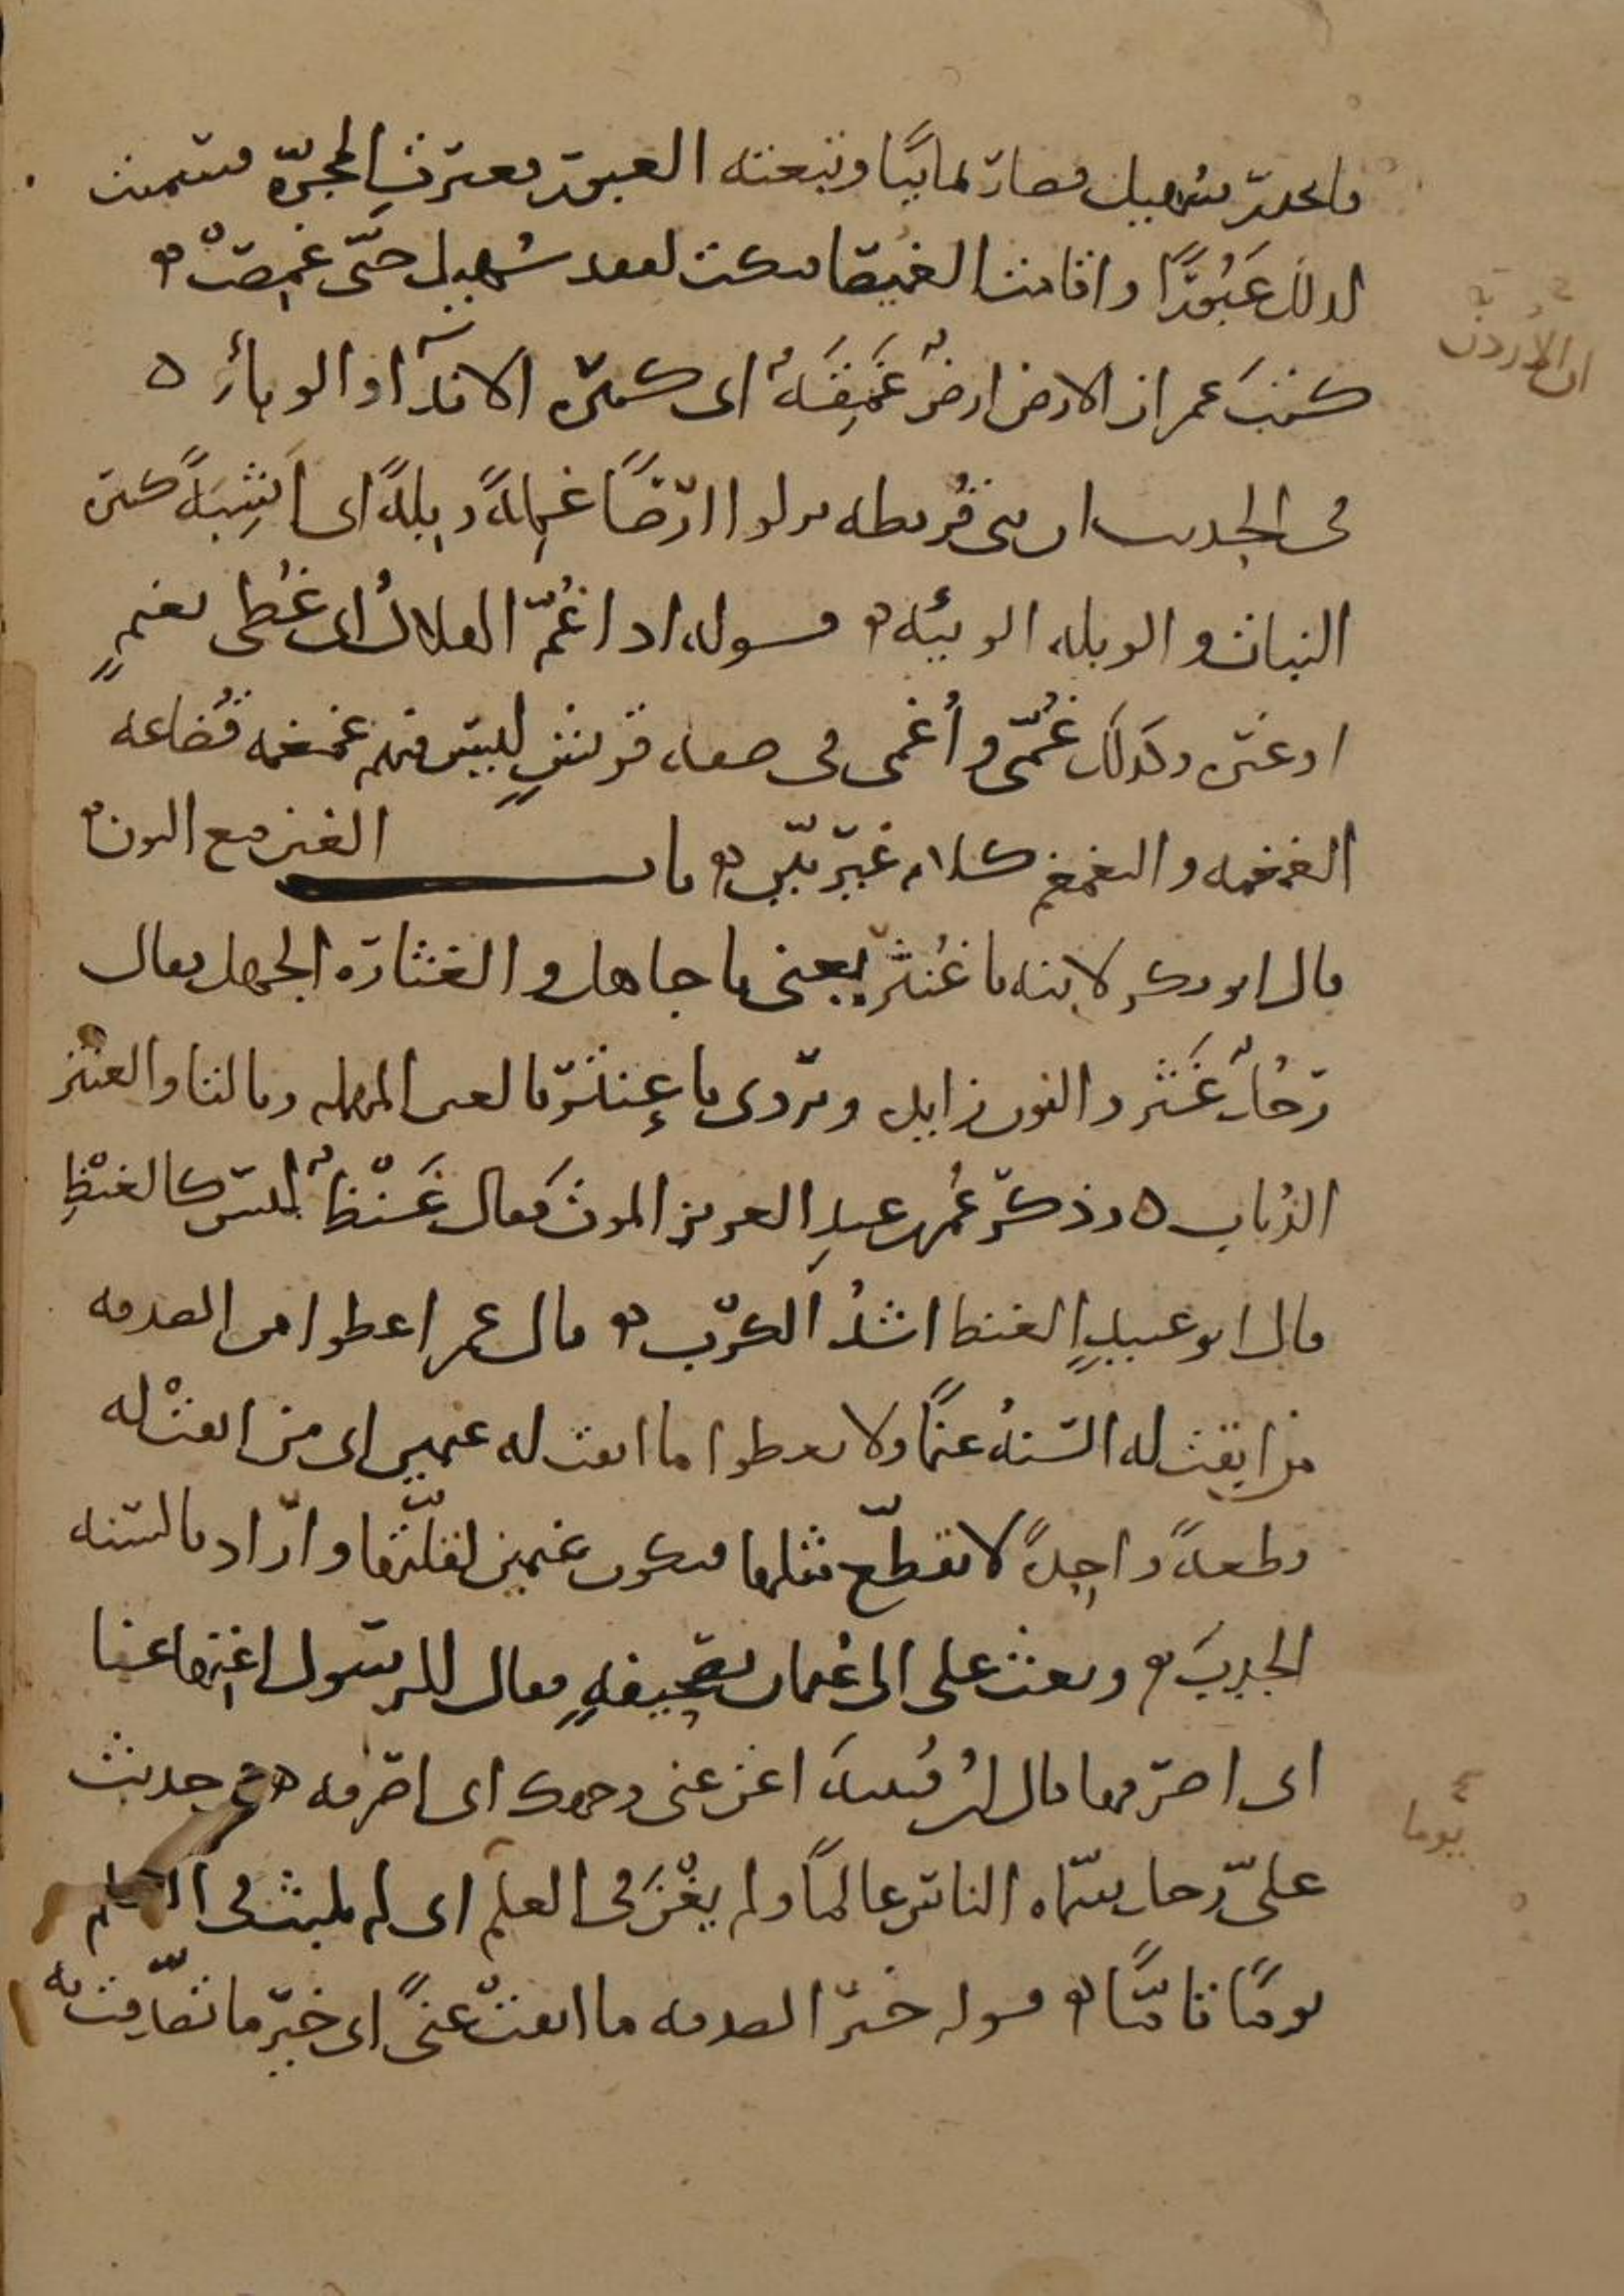 فانحدر سُهيل فصار يمانيًا وتبعته العبور فعبرت المجرّة فسميت
لذلك عَبُورًا واقامت الغميصا فبكت لفقد سُهيل حتّى غمِصَتْ
كتبَ عمر ان الارض ارضٌ غَمِقَةٌ اى كثيرة الانداء والوباء ه
فى الحديث ان بنى قُريظه نزلوا ارضًا غمِلةً وبِلةً اى اشِبَةً كثيرة
النبات والوبله الوبيئه قوله اذا غُمّ الهلالُ اى غُطى بغيمٍ
او غيره وكذلك غُمّى وأُغمى فى صفه قريشٍ ليس فيهم غمغمه قُضاعه
الغمغمه والتغمغم كلام غير بيّن باب الغين مع النون
قال ابو بكر لابنه يا غُنثر يعنى يا جاهل والغثارة الجهل يقال
رجُلٌ غَثَر والنون زايده ويروى يا عنتر بالعين المهمله وبالتا والعنتر
الذُباب ه وذكر عُمر بن عبدِ العزيز الموت فقال غَنْظٌ ليس كالغنْظِ
قال ابو عبيدٍ الغنظ اشدُ الكرْب قال عمر اعطوا من الصدقه
من ابقت له السنهُ غنمًا ولا تعطوا من ابقت له غنمين اى من ابقتْ له
قطعةً واحِدةً لا تقطّع مثلها فتكون غنمين لقلّتها واراد بالسنه
الجدبَ وبعث على الى عُثمان بصحيفةٍ فقال للرسول اغنِها عنا
اى اصرفها قال ابن قُتيبة اغن عنى وجهك اى اصرفه فى حديث
علىّ رجل سمّاه الناس عالمًا ولم يغْنَ فى العلم اى لم يلبث فى العلم
يومًا تامًّا قوله خير الصدقه ما ابقتْ غنىً اى خير ما تصدّقت به
ان الأُردن
يوما